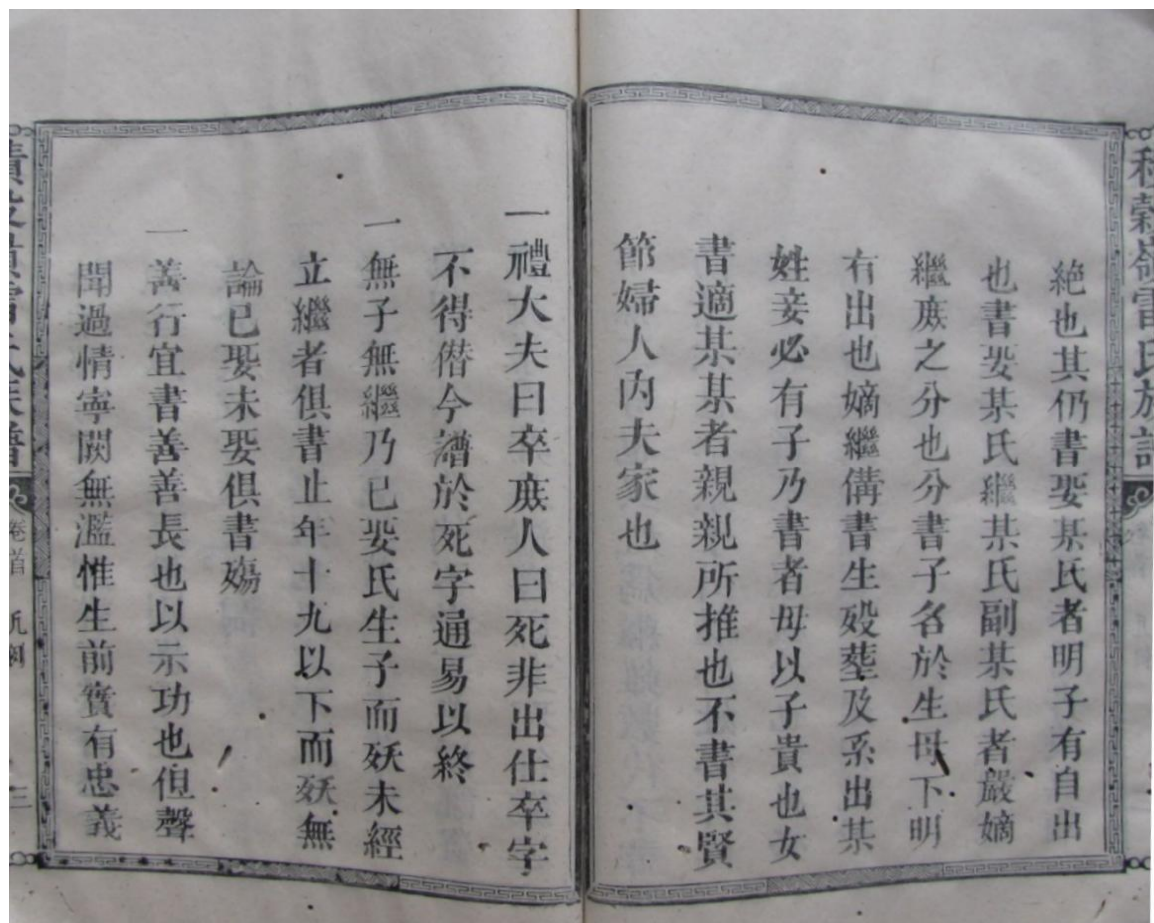 種穀嶺雷氏族譜
絶也其仍書娶某氏者明子有自出
也書娶某氏繼某氏副某氏者嚴嫡
繼庻之分也分書子名於生母下明
有出也嫡繼備書生殁塟及系出某
姓妾必有子乃書者母以子貴也女
書適某某者親親所推也不書其賢
節婦人內夫家也
一禮大夫曰卒庻人曰死非出仕卒字
不得僣今譜於死字通易以終
一無子無繼乃已娶氏生子而殀未經
立繼者俱書止年十九以下而殀無
論已娶未娶俱書殤
一善行宜書善善長也以示功也但聲
聞過情寧闕無濫惟生前實有忠義
雷氏族譜 卷首 凡例 三